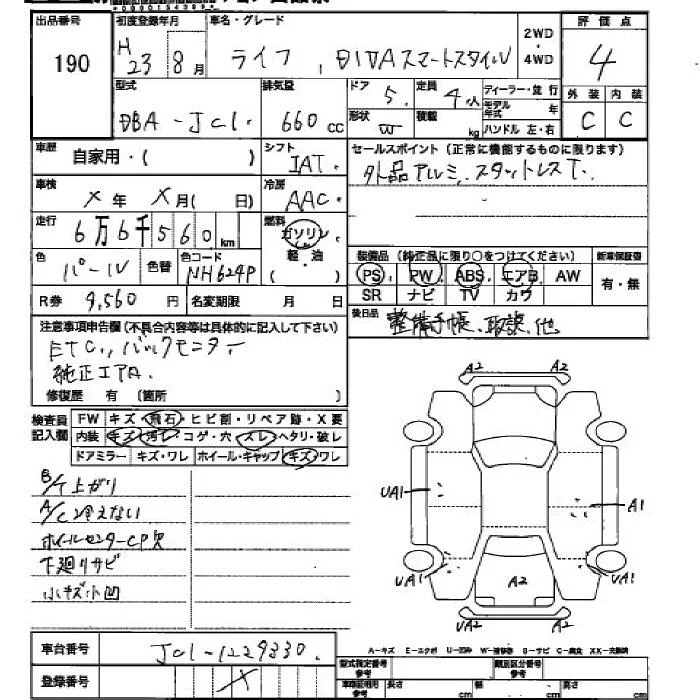 出品番号 初度登録年月 車名・グレード 2WD・4WD 評価点
190 H 23 8月 ライフ DIVAスマートスタイル 4
外装 内装
C C
型式 排気量 ドア 定員 ディーラー・並行
DBA-JC1 660cc 5 4人 モデル年式 年
形状 積載 kg ハンドル 左・右
車歴 自家用・( ) シフト IAT セールスポイント(正常に機能するものに限ります)
外品アルミ、スタットレスT.
車検 X年 X月( 日) 冷房 AAC
走行 6万6千560km 燃料 ガソリン
軽・油
( )
色 パール 色替 色コード NH624P
装備品(純正品に限り○をつけてください) 新車保証書
PS PW ABS エアB AW 有・無
SR ナビ TV カワ
R券 9,560円 名変期限 月 日
後日品 整備手帳、取説、他
注意事項申告欄(不具合内容等は具体的に記入して下さい)
ETC,,バックモニター
純正エアA.
修復歴 有 (箇所 )
検査員記入欄 FW キズ・飛石・ヒビ割・リペア跡・X要
内装 キズ・汚レ・コゲ・穴・スレ・ヘタリ・破レ
ドアミラー キズ・ワレ ホイール・キャップ キズ・ワレ
B/ド上がり
A/C冷えない
ホイールセンターCP欠
下廻りサビ
小キズ小凹
A2 A2
UA1 A1
UA1 A2 UA1
UA2 A2
A-キズ E-エクボ U-凹み W-補修跡 S-サビ C-腐食 XX-交換済
車台番号 JC1-1229330
登録番号 X
型式指定番号 参考 類別区分番号 参考
長さ cm 幅 cm 高さ cm